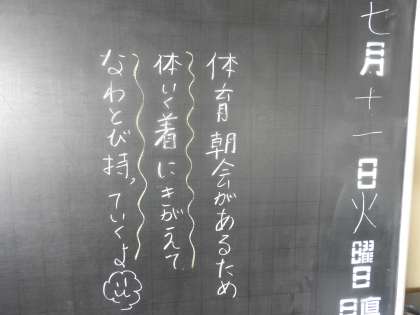 七月十一日火曜日
体育朝会があるため
体いく着にきがえて
なわとび持っていくよ